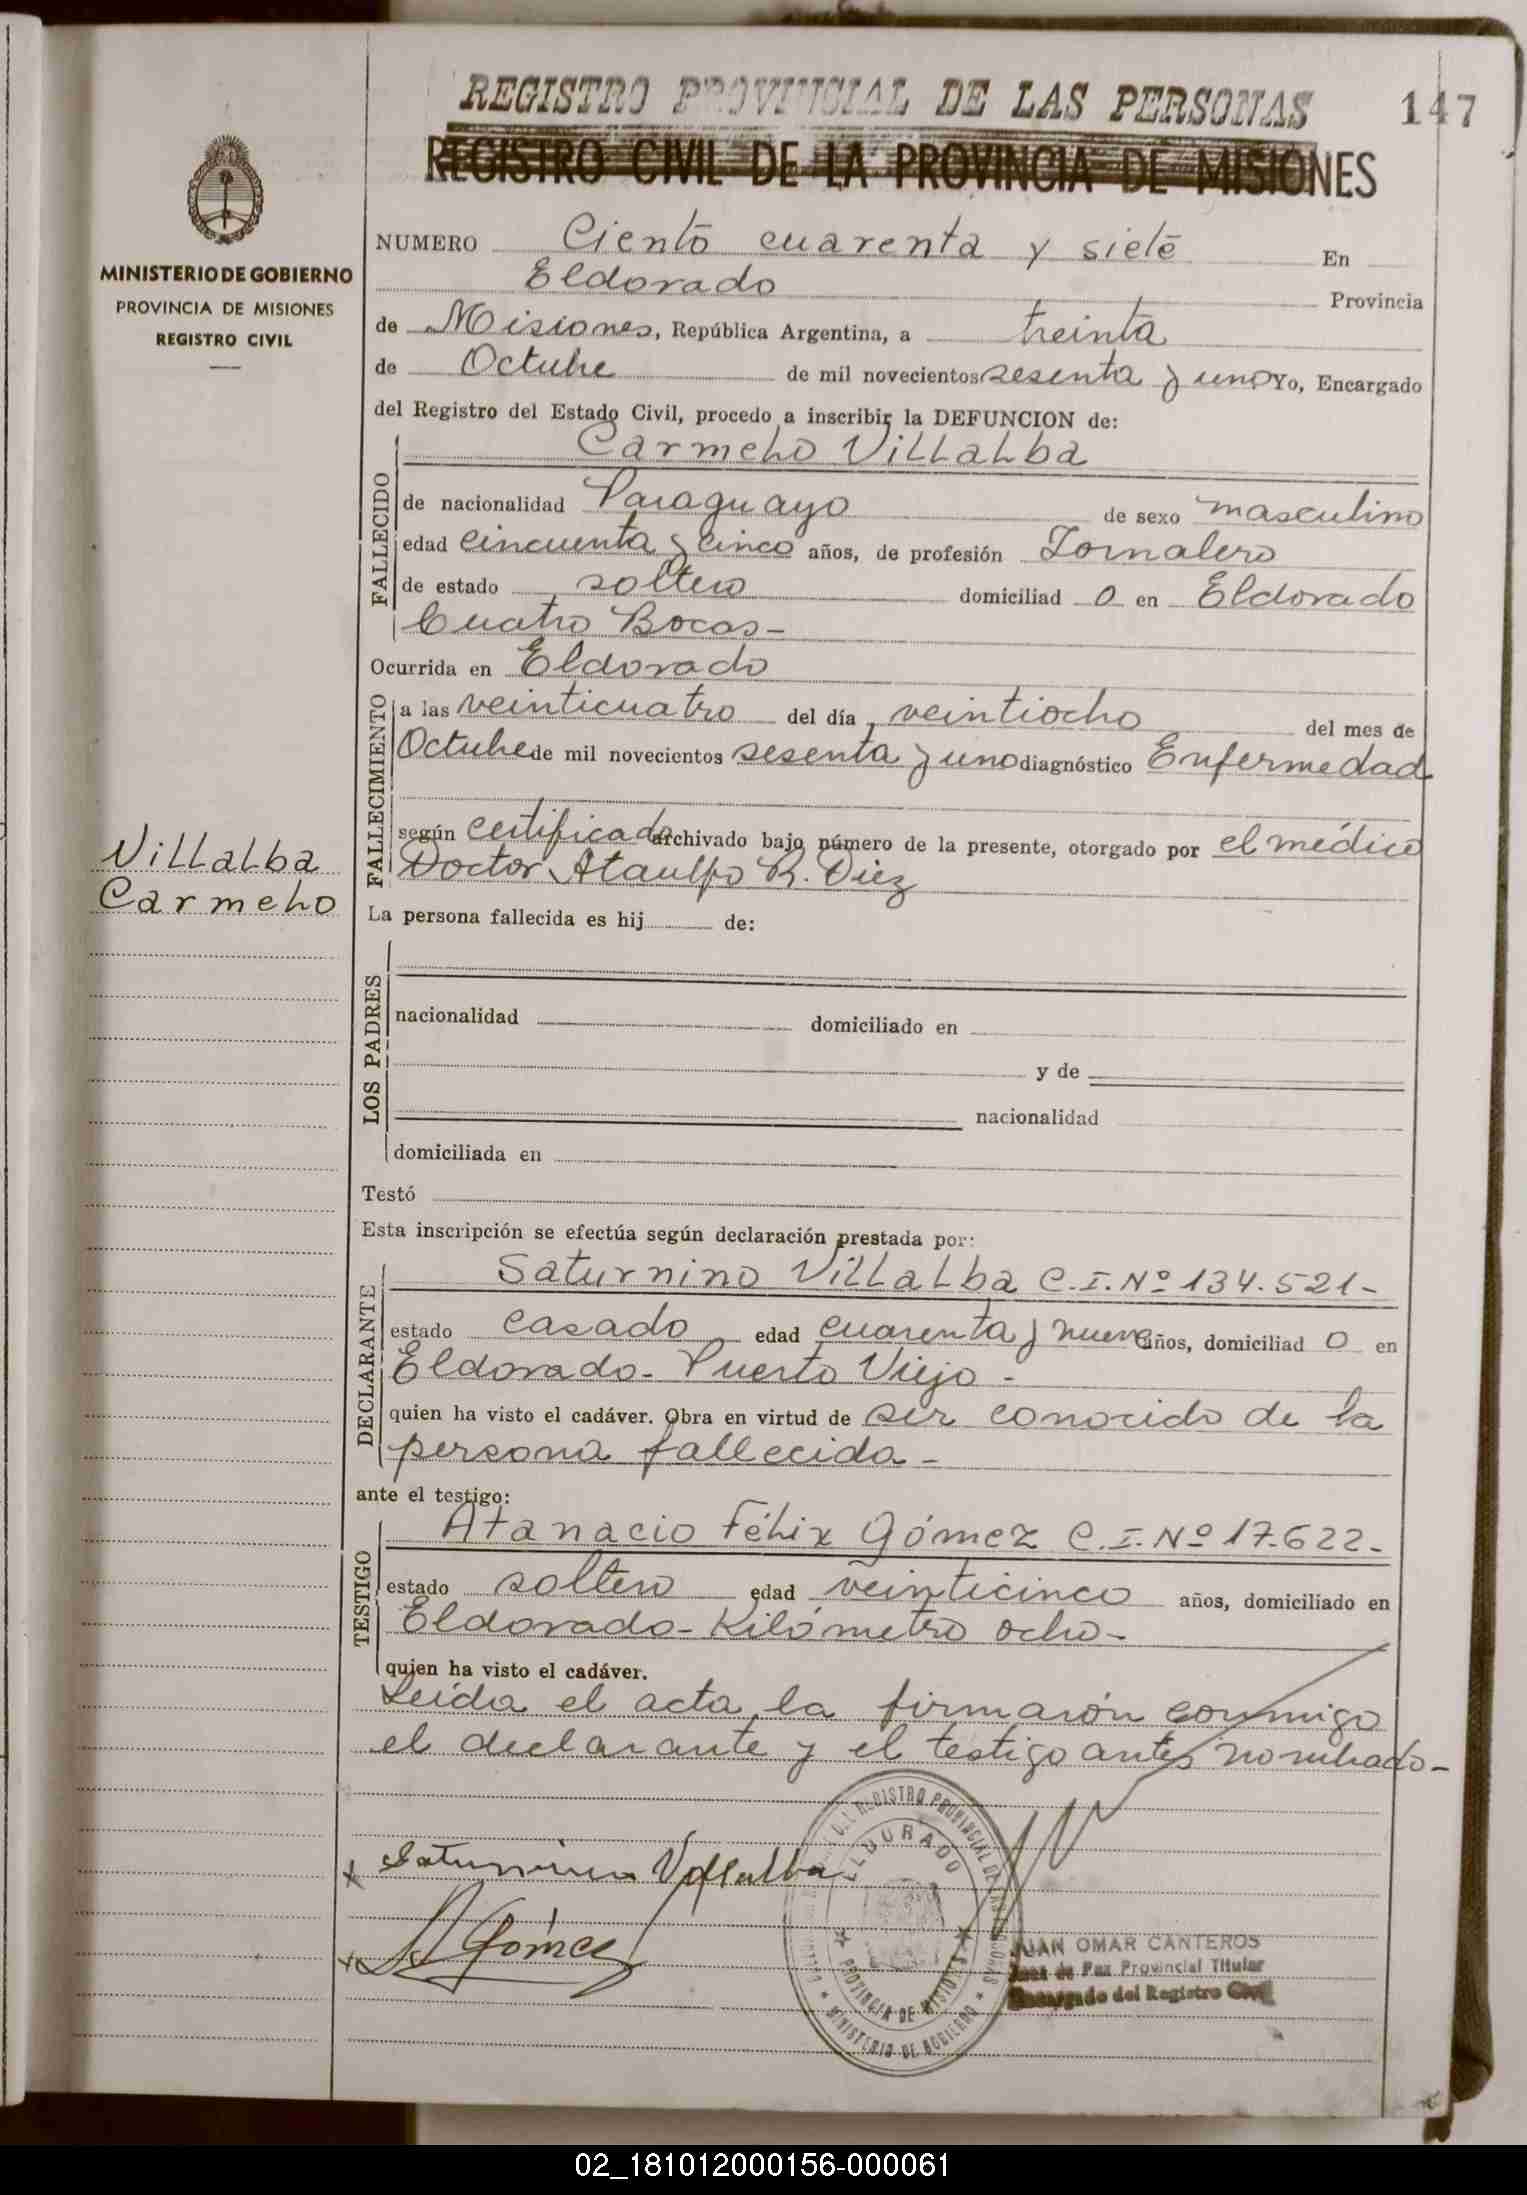 REGISTRO PROVINCIAL DE LAS PERSONAS
147
REGISTRO CIVIL DE LA PROVINCIA DE MISIONES
MINISTERIO DE GOBIERNO
PROVINCIA DE MISIONES
REGISTRO CIVIL
NUMERO Ciento cuarenta y siete En
Eldorado Provincia
de Misiones, República Argentina, a treinta
de Octubre de mil novecientos sesenta y uno Yo, Encargado
del Registro del Estado Civil, procedo a inscribir la DEFUNCION de:
FALLECIDO
Carmelo Villalba
de nacionalidad Paraguayo de sexo masculino
edad cincuenta y cinco años, de profesión Jornalero
de estado soltero domiciliad o en Eldorado
Cuatro Bocas-
Ocurrida en Eldorado
FALLECIMIENTO
a las veinticuatro del día veintiocho del mes de
Octubre de mil novecientos sesenta y uno diagnóstico Enfermedad
según certificado archivado bajo número de la presente, otorgado por el médico
Doctor Ataulfo R. Diez
Villalba
Carmelo
La persona fallecida es hij de:
LOS PADRES
nacionalidad domiciliado en
y de
nacionalidad
domiciliada en
Testó
Esta inscripción se efectúa según declaración prestada por:
DECLARANTE
Saturnino Villalba C.I.Nº 134.521-
estado casado edad cuarenta y nueve años, domiciliad o en
Eldorado- Puerto Viejo-
quien ha visto el cadáver. Obra en virtud de ser conocido de la
persona fallecida-
ante el testigo:
TESTIGO
Atanacio Félix Gómez C.I.Nº 17.622-
estado soltero edad veinticinco años, domiciliado en
Eldorado- Kilómetro ocho-
quien ha visto el cadáver.
Leída el acta, la firmarón conmigo
el declarante y el testigo antes nombrado-
x Saturnino Villalba
x A Gómez
REGISTRO PROVINCIAL DE LAS PERSONAS
ELDORADO
PROVINCIA DE MISIONES
MINISTERIO DE GOBIERNO
JUAN OMAR CANTEROS
Juez de Paz Provincial Titular
Encargado del Registro Civil
02_181012000156-000061